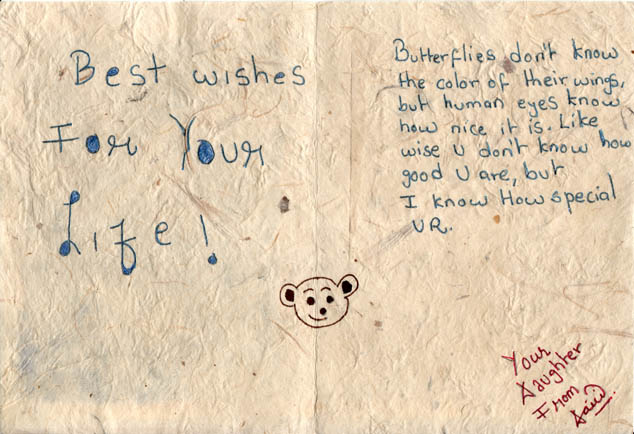 Best wishes
For Your
Life!
Butterflies don't know
the color of their wings,
but human eyes know
how nice it is. Like
wise u don't know how
good u are, but
I know How special
UR.
Your
Daughter
From